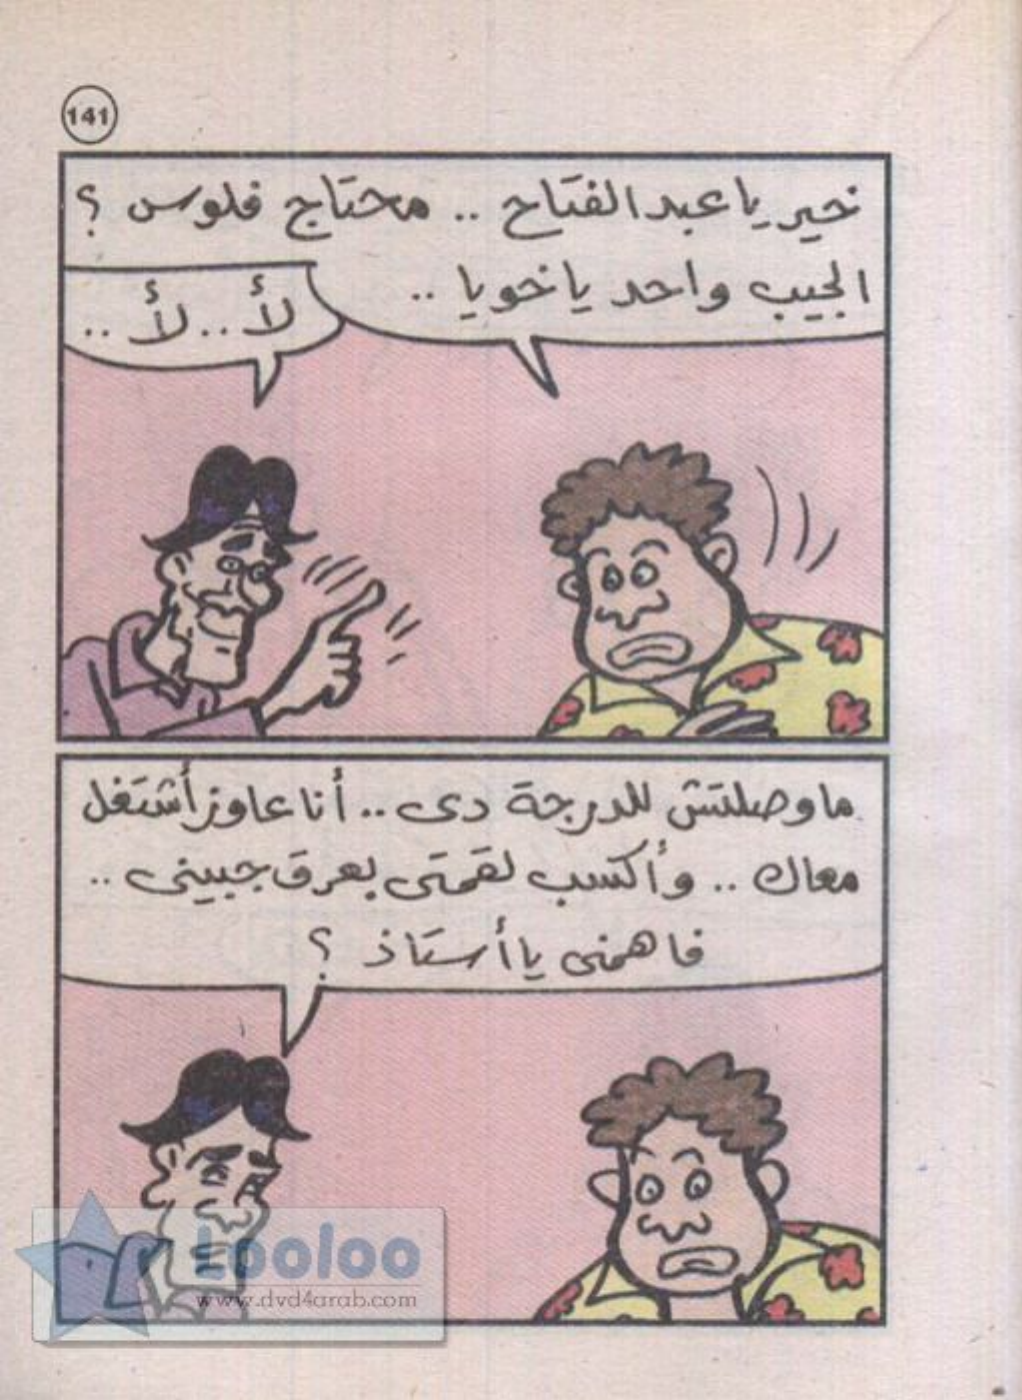 141
خير يا عبد الفتاح .. محتاج فلوس ؟
الجيب واحد يا خويا ..
لأ .. لأ ..
ما وصلتش للدرجة دى .. أنا عاوز أشتغل
معاك .. وأكسب لقمتى بعرق جبينى ..
فاهمنى يا أستاذ ؟
Looloo
www.dvd4arab.com